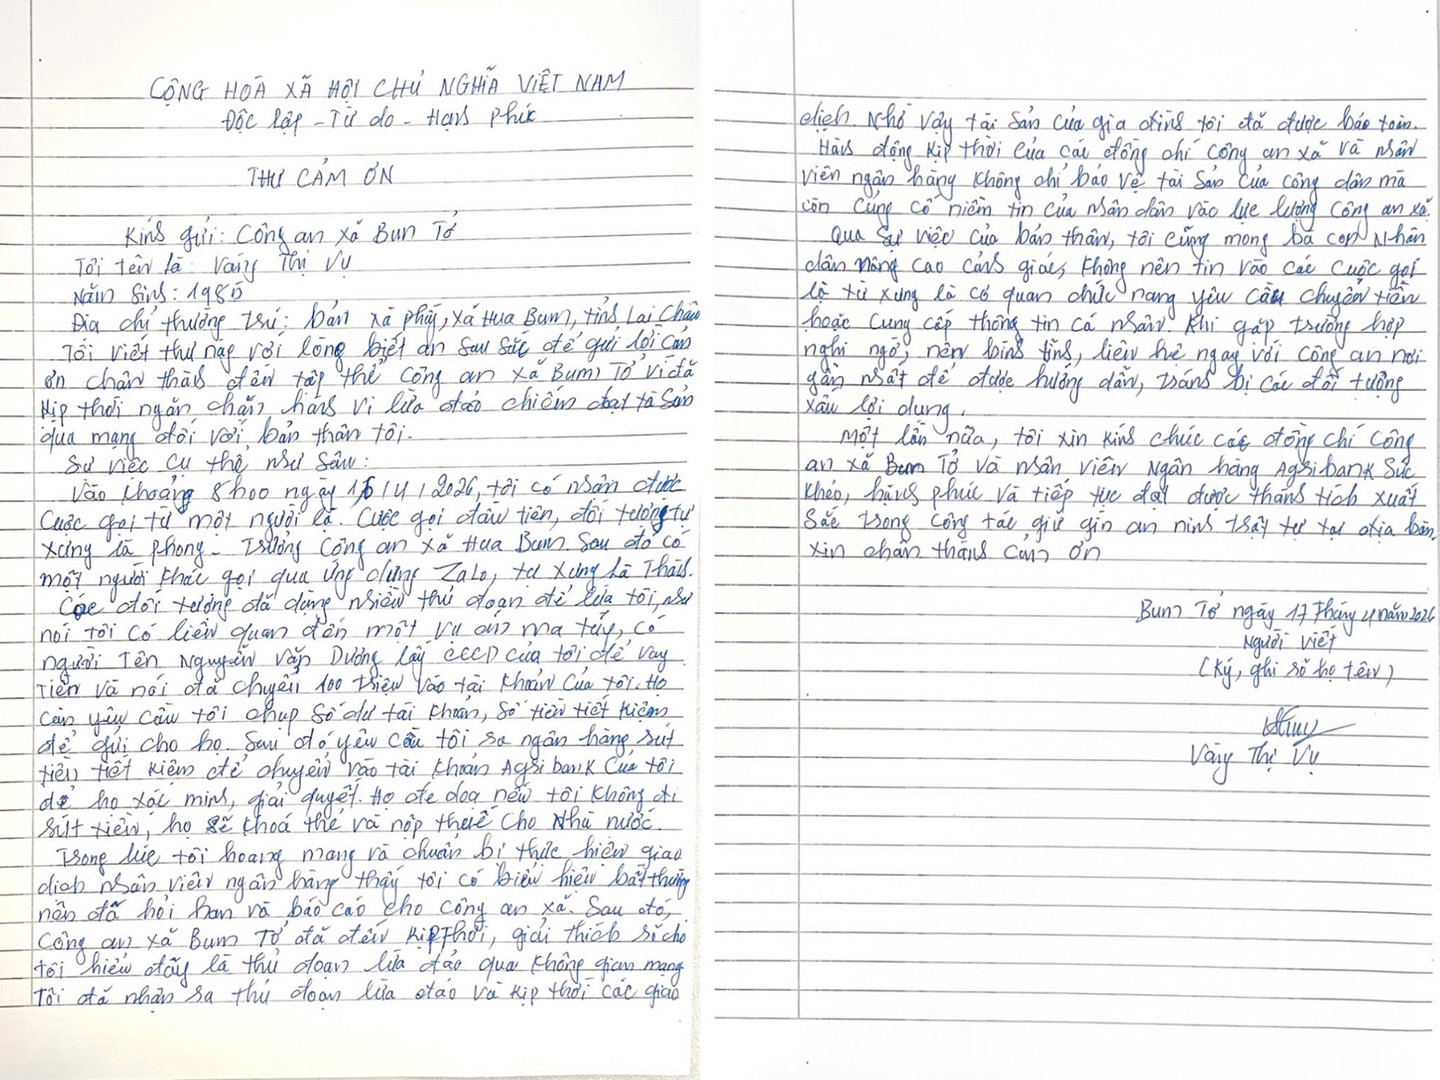 CỘNG HOÀ XÃ HỘI CHỦ NGHĨA VIỆT NAM
Độc lập - Tự do - Hạnh phúc
THƯ CẢM ƠN
Kính gửi: Công an xã Bum Tở
Tôi tên là: Vàng Thị Vụ
Năm sinh: 1985
Địa chỉ thường trú: bản xà phậy, xã Hua Bum, tỉnh Lai Châu
Tôi viết thư này với lòng biết ơn sâu sắc để gửi lời cảm
ơn chân thành đến tập thể Công an xã Bum Tở vì đã
kịp thời ngăn chặn hành vi lừa đảo chiếm đoạt tà sản
qua mạng đối với bản thân tôi.
Sự việc cụ thể như sau:
Vào khoảng 8h00 ngày 15/4/2026, tôi có nhận được
cuộc gọi từ một người lạ. Cuộc gọi đầu tiên, đối tượng tự
xưng là phong - Trưởng Công an xã Hua Bum. Sau đó có
một người khác gọi qua ứng dụng Zalo, tự xưng là Thành.
Các đối tượng đã dùng nhiều thủ đoạn để lừa tôi, như
nói tôi có liên quan đến một vụ án ma túy, có
người Tên Nguyễn Văn Dương lấy CCCD của tôi để vay
tiền và nói đã chuyển 100 triệu vào tài khoản của tôi. Họ
còn yêu cầu tôi chụp số dư tài khoản, số tiền tiết kiệm
để gửi cho họ. Sau đó yêu cầu tôi ra ngân hàng rút
tiền tiết kiệm để chuyển vào tài khoản Agribank của tôi
để họ xác minh, giải quyết. Họ đe doạ nếu tôi không đi
rút tiền, họ sẽ khoá thẻ và nộp thuế cho Nhà nước.
Trong lúc tôi hoang mang và chuẩn bị thực hiện giao
dịch nhân viên ngân hàng thấy tôi có biểu hiện bất thường
nên đã hỏi han và báo cáo cho công an xã. Sau đó,
Công an xã Bum Tở đã đến kịp thời, giải thích rõ cho
tôi hiểu đây là thủ đoạn lừa đảo qua không gian mạng
Tôi đã nhận ra thủ đoạn lừa đảo và kịp thời các giao
dịch. Nhờ vậy tài sản của gia đình tôi đã được bảo toàn.
Hành động kịp thời của các đồng chí công an xã và nhân
viên ngân hàng không chỉ bảo vệ tài sản của công dân mà
còn củng cố niềm tin của nhân dân vào lực lượng Công an xã.
Qua sự việc của bản thân, tôi cũng mong bà con Nhân
dân nâng cao cảnh giác, không nên tin vào các cuộc gọi
lạ tự xưng là cơ quan chức nang yêu cầu chuyển tiền
hoặc cung cấp thông tin cá nhân. Khi gặp trường hợp
nghi ngờ, nên bình tĩnh, liên hệ ngay với công an nơi
gần nhất để được hướng dẫn, tránh bị các đối tượng
xấu lợi dụng.
Một lần nữa, tôi xin kính chúc các đồng chí công
an xã Bum Tở và nhân viên Ngân hàng Agribank sức
khỏe, hạnh phúc và tiếp tục đạt được thành tích xuất
sắc trong công tác giữ gìn an ninh trật tự tại địa bàn.
xin chân thành cảm ơn
Bum Tở ngày 17 tháng 4 năm 2026
Người viết
(Ký, ghi rõ họ tên)
Vàng Thị Vụ